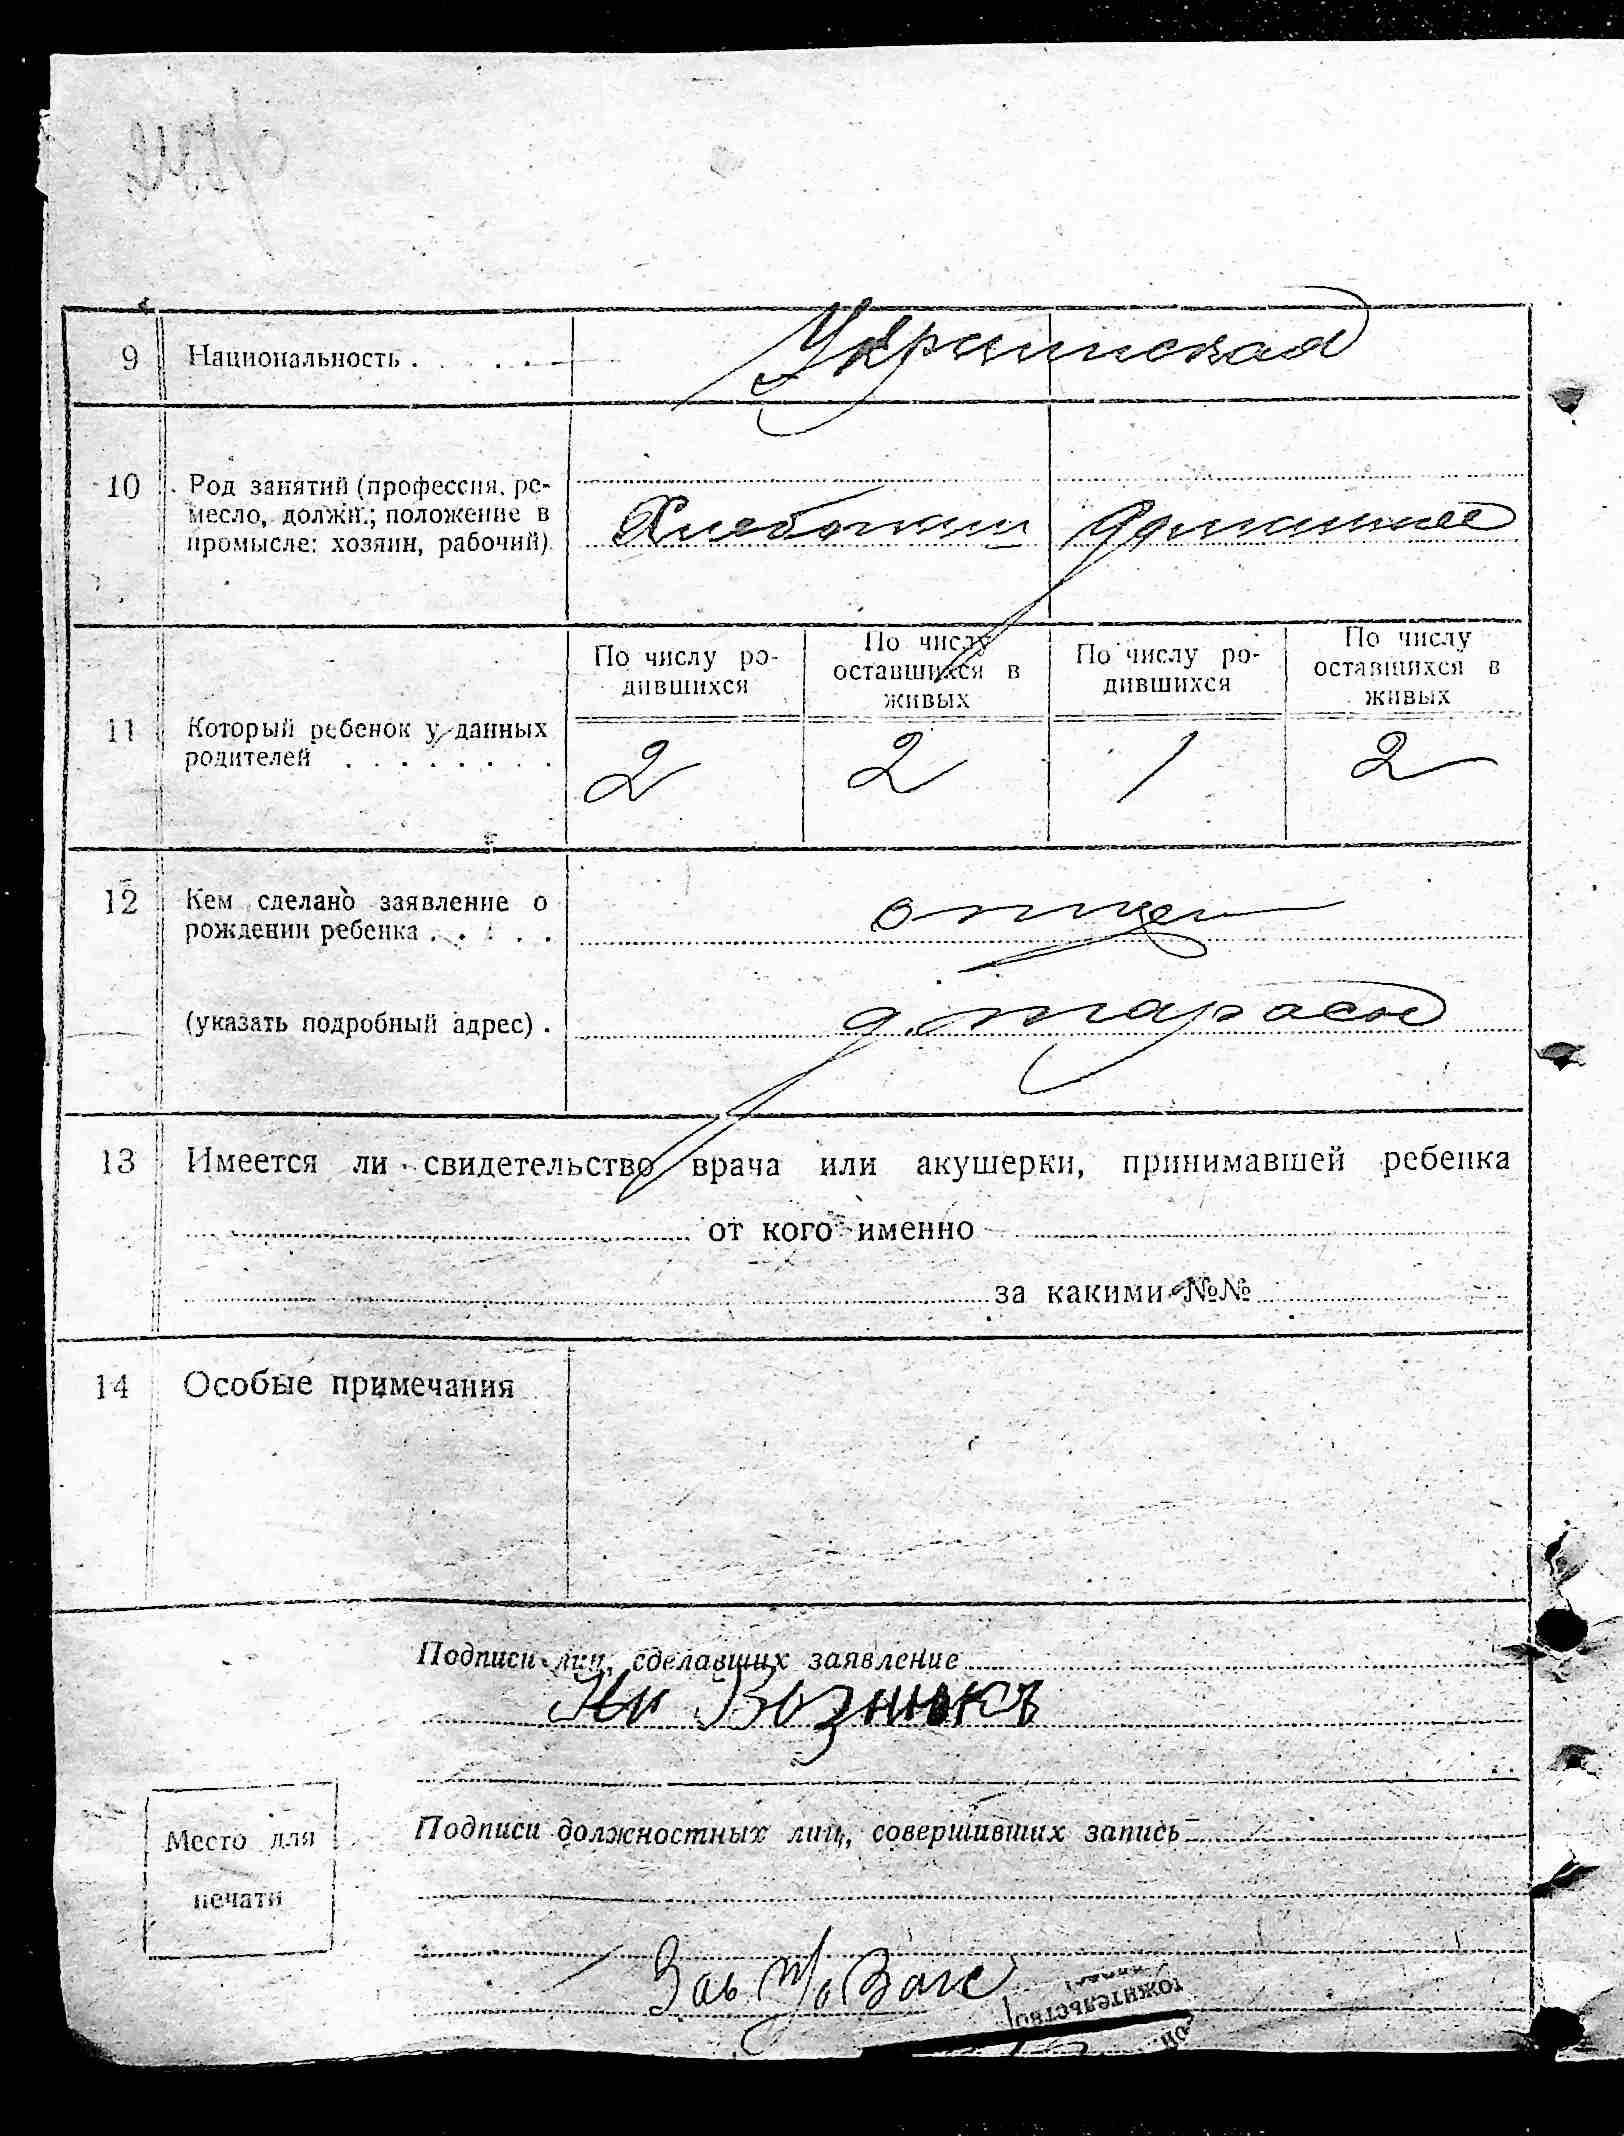 9 Национальность . . . . . Укрлинская
10 Род занятий (профессия, ре-
месло, должн.; положение в
промысле: хозяин, рабочий)
Хлебопаш Домашнее
По числу ро-
дившихся
По числу
оставшихся в
живых
По числу ро-
дившихся
По числу
оставшихся в
живых
11 Который ребенок у данных
родителей . . . . . . . .
2 2 1 2
12 Кем сделано заявление о
рождении ребенка . . . . .
отцем
(указать подробный адрес) . д.
13 Имеется ли свидетельство врача или акушерки, принимавшей ребенка
от кого именно
за какими №№
14 Особые примечания
Подписи лиц, сделавших заявление
Вознюкъ
Подписи должностных лиц, совершивших запись
Место для
печати
Зав п/о Загс